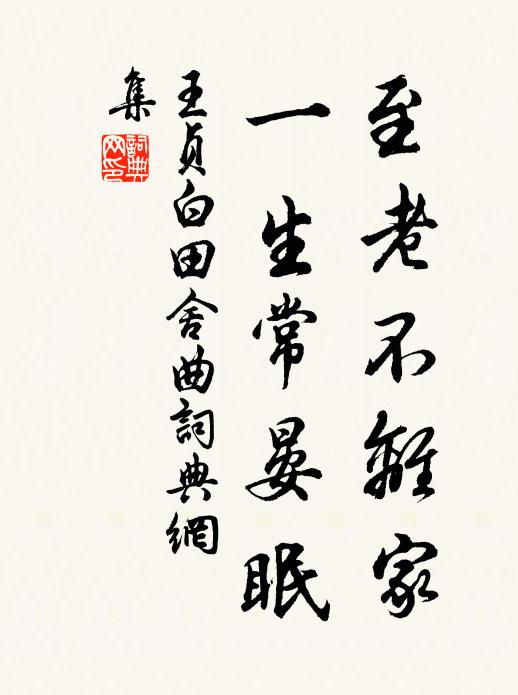 至老不離家
一生常晏眠
王貞白田舍曲詞典網
集
詞典
网印